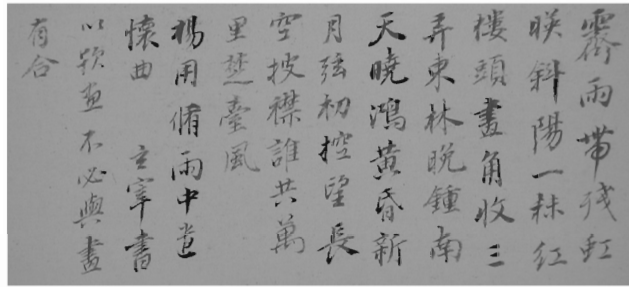 霽雨帶殘虹
暎斜陽一抹紅
樓頭畫角收三
弄東林晚鍾南
天曉鴻黃昏新
月弦初控望長
空披襟誰共萬
里楚臺風
楊用脩雨中遣
懷曲 玄宰書
以畫不必與畫
有合